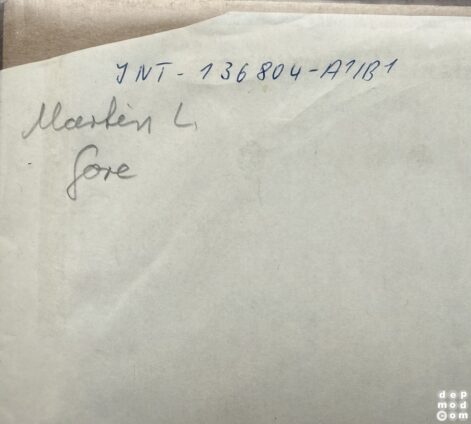 INT-136804-A1/B1
Martin L.
Gore
dep
mod
com